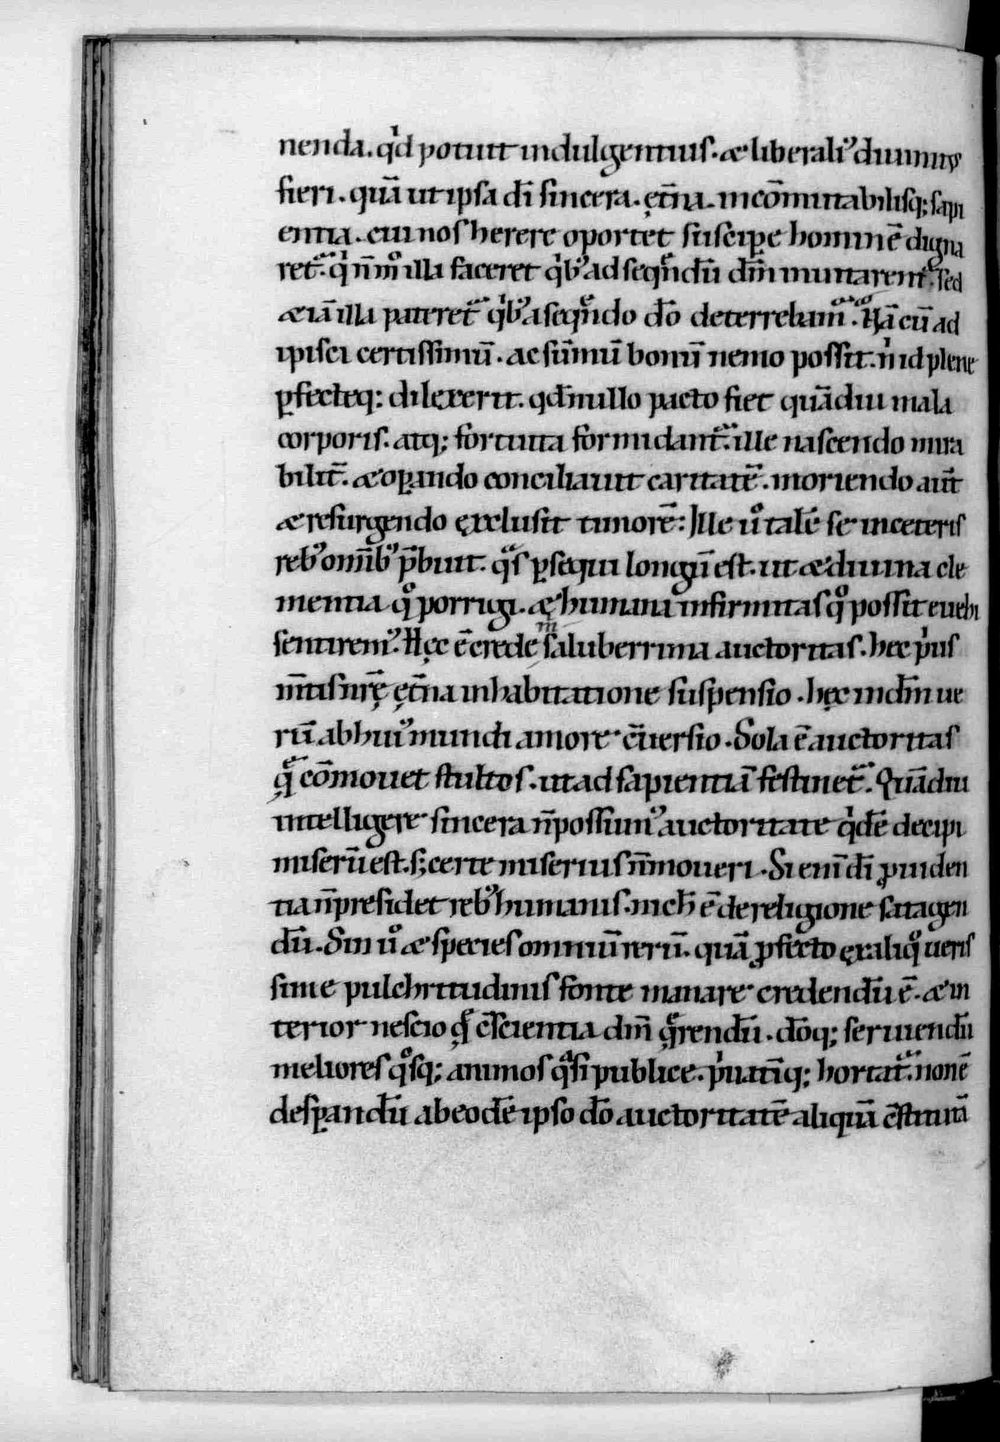 nenda. qͥd potuit indulgentius. æ liberaliꝰ diuinitꝰ
fieri. quā ut ipsa dī sincera. ęt̄na. incōmutabilisq; sapi
entia. cui nos herere oportet suscipe hominē digna
ret᷑. qͥ n̄ mͦ illa faceret qͥbꝰ ad seqn̄dū dm̄ inuitarent᷑. sed
æ iā illa pateret᷑ qͥbꝰ a seqn̄do dō deterrebam᷑. Nā cū ad
ipisci certissimū. ac sūmū bonū nemo possit. n̄ id plene
ꝑfecteq; dilexerit. qd̄ nullo pacto fiet quādiu mala
corporis. atq; fortuita formidant᷑. ille nascendo mira
bilit̄. æ oꝑando conciliauit caritatē. moriendo aut̄
æ resurgendo exclusit timorē: Ille uͦ talē se in ceteris
rebꝰ omībꝰ p̄buit. qͣs ꝑsequi longū est. ut æ diuina cle
mentia qͦ porrigi. æ humana infirmitas qͦ possit euehi
sentirem᷒. Hęc ē crede m̄ saluberrima auctoritas. hec pͥus
m̄tis nr̄ę ęt̄na inhabitatione suspensio. hęc in dm̄ ue
rū ab huiꝰ mundi amore c̄uersio. Sola ē auctoritas
q̄ cōmouet stultos. ut ad sapientiā festinet᷑. Quādiu
intelligere sincera n̄ possum᷒ auctoritate qͥdē decipi
miserū est. s; certe miserius n̄ moueri. Si enī dī ꝓuiden
tia n̄ presidet rebꝰ humanis. nich̄ ē de religione satagen
dū. Sin uͦ æ species omniū rerū. quā ꝓfecto ex aliqͦ ueris
sime pulchritudinis fonte manare credendū ē. æ in
terior nescio q̄ c̄scientia dm̄ q̄rendū. dōq; seruiendū
meliores qͦsq; animos qͣsi publice. pͥuatīq; hortat᷑. non ē
desꝑandū ab eodē ipso dō auctoritatē aliquā c̄stitutā